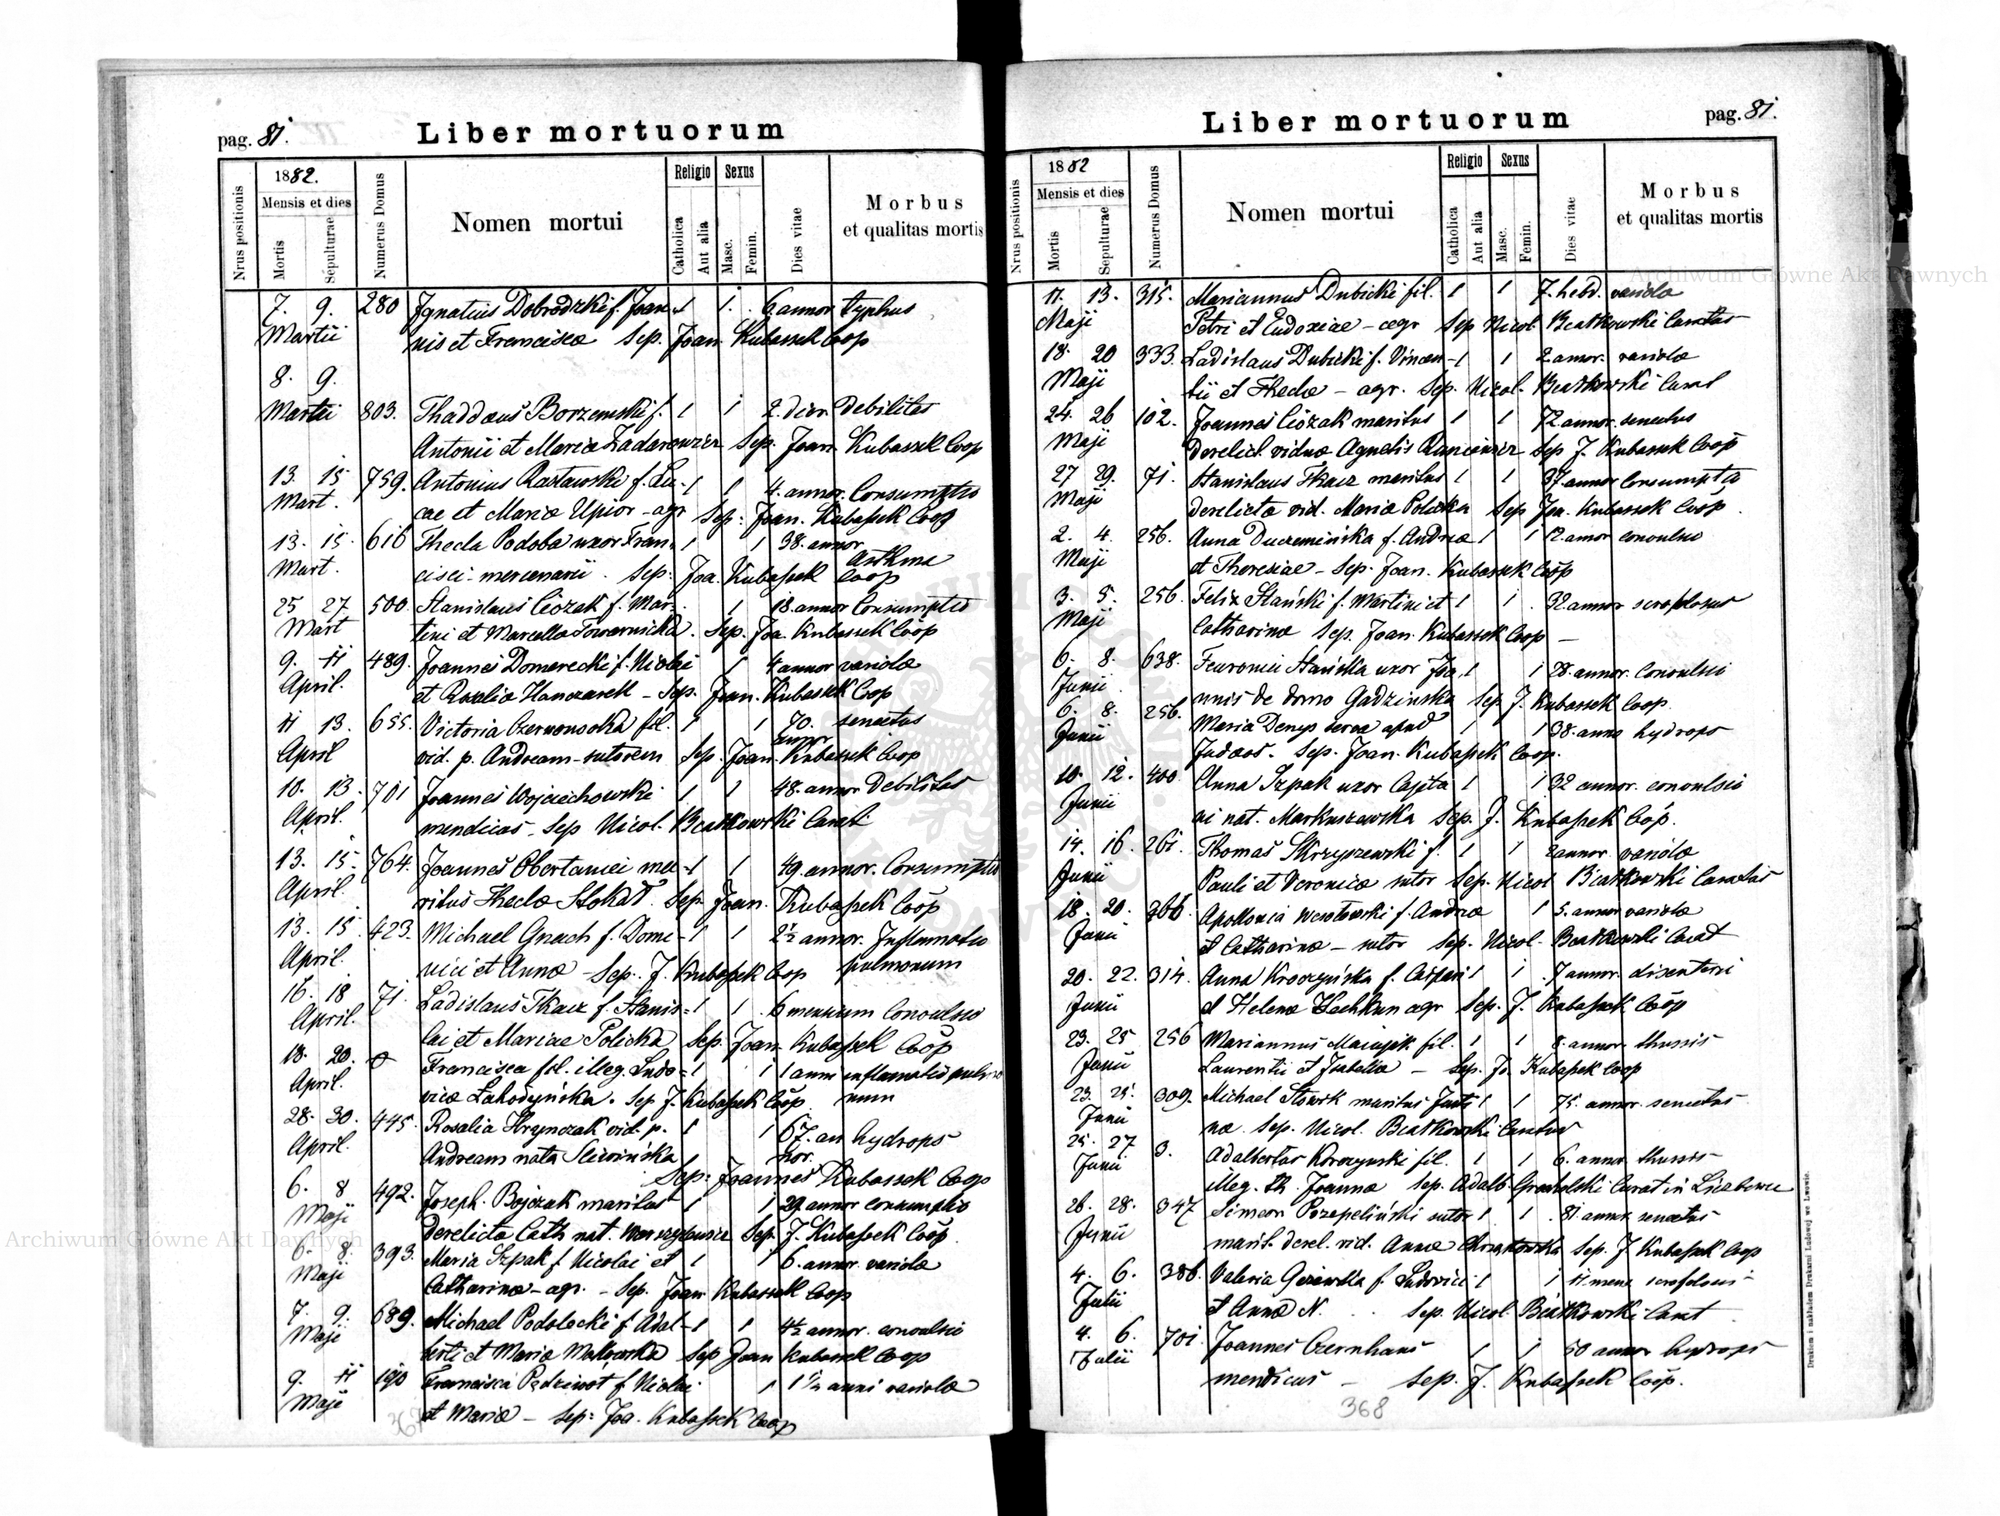 pag. 81.
Liber mortuorum
Nrus positionis
1882.
Mensis et dies
Mortis
Sepulturae
Numerus Domus
Nomen mortui
Religio
Catholica
Aut alia
Sexus
Masc.
Femin.
Dies vitae
Morbus
et qualitas mortis
7. 9. 280 Ignatius Dobrodzki f. Joan- 1 1 6 annor typhus
Martii nis et Franciscæ Sep. Joan. Kubassek Coop
8. 9.
Martii 803. Thaddæus Borzemski f. 1 1 2. dier. Debilitas
Antonii et Mariæ Zadarowicz Sep. Joan. Kubassek Coop
13. 15 759. Antonius Rastawski f. Lu- 1 1 4. annor. Consumptio
Mart. cae et Mariæ Upior - agr Sep: Joan. Kubassek Coop
13. 15. 616 Thecla Podoba uxor Fran- 1 1 38. annor
Mart. cisci - mercenarii. Sep: Joa. Kubassek Coop Asthma
25 27 500. Stanislaus Ciózak f. Mar- 1 18. annor Consumptio
Mart tini et Marcella Towarnicka. Sep. Joa. Kubassek Coop
9. 11 489. Joannes Domerecki f. Nicolai 1 4 annor variola
April. et Rosalia Hanczarek - Sep. Joan. Kubassek Coop
11 13. 655. Victoria fil. 1 1 70. senectus
April vid. p. Andream - sutorem Sep. Joan. annor Kubassek Coop
10. 13. 701 Joannes Wojciechowski 1 1 48. annor Debilitas
April. mendicus - Sep Nicol. Beatkowski Curat.
13. 15. 764. Joannes Obertaniec ma- 1 1 49. annor. Consumptio
April. ritus Theclæ Sep. Joan. Kubassek Coop
13. 15 423. Michael Gnach f. Domi- 1 1 2½ annor. Inflamatio
April. nici et Annæ - Sep. J. Kubassek Coop pulmonum
16. 18 71. Ladislaus Tkacz f. Stanis- 1 1 6 mensium Convulsio
April. lai et Mariae Policka Sep. Joan. Kubassek Coop
18. 20. 0 Francisca fil. illeg. Ludo- 1 1 1 anni inflamatio pulmo
April. vicæ Sep J. Kubassek Coop num
28. 30. 445. Rosalia Hrynczak vid. p. 1 1 67. an hydrops
April. Andream nata Sliwińska nor.
Sep: Joannes Kubassek Coop
6. 8 492. Joseph. Bojczak maritus 1 1 29. annor consumptio
Maji derelicta Cath nat. Sep. J. Kubassek Coop
6. 8. 393. Maria Szpak f Nicolai et 1 1 6. annor. variola
Maji Catharinæ - agr. - Sep. Joan Kubassek Coop
7 9. 689. Michael Podolecki f. Adal- 1 1 4½ annor. convulsio
Maji berti et Maria Sep Joan Kubassek Coop
9. 11 190 Francisca f Nicolai 1 1 ½ anni variola
Maji et Mariæ - Sep: Joa. Kubassek Coop
pag. 81.
Liber mortuorum
Nrus positionis
1882
Mensis et dies
Mortis
Sepulturae
Numerus Domus
Nomen mortui
Religio
Catholica
Aut alia
Sexus
Masc.
Femin.
Dies vitae
Morbus
et qualitas mortis
11. 13. 315. Mariannus Dubicki fil. 1 1 7. hebd. variola
Maji Petri et Eudoxiae - agr Sep Nicol Beatkowski Curatus
18. 20 333. Ladislaus Dubicki f. Vincen- 1 1 2 annor. variola
Maji tii et Theclæ - agr. Sep. Nicol. Beatkowski Curat
24. 26 102. Joannes Ciózak maritus 1 1 72 annor. senectus
Maji Derelict. viduæ Agnetis Sep J. Kubassek Coop
27 29. 71. Stanislaus Tkacz maritus 1 1 37. annor Consumptio
Maji derelicta vid. Mariæ Policka Sep Joa. Kubassek Coop.
2. 4. 256. Anna f. Andreæ 1 1 12. annor convulsio
Maji et Theresiae - Sep. Joan. Kubassek Coop
3. 5. 256. Felix Stański f. Martini et 1 1 32 annor
Maji Catharinæ Sep. Joan. Kubassek Coop -
6. 8. 638. Stańska uxor Joa- 1 1 28. annor. convulsio
Junii nnis de domo Gadzińska Sep. J. Kubassek Coop.
6. 8. 256. Maria Denys serva apud 1 1 38. anno hydrops
Junii Judæos. Sep. Joan. Kubassek Coop.
10. 12. 400. Anna Szpak uxor Cajeta 1 1 32 annor. convulsio
Junii ni nat. Markuszewska Sep. J. Kubassek Coop.
14. 16. 261. Thomas Skrzyszewski f. 1 1 2 annor. variola
Junii Pauli et Veronicæ sutor Sep. Nicol Beatkowski Curatus
18. 20. 266. Apollonia f. Andreæ 1 5. annor variola
Junii et Catharinæ - sutor Sep. Nicol Beatkowski Curat
20. 22. 314. Anna f. Caspari 1 1 7 annor. disenteri
Junii et Helenæ agr Sep. J. Kubassek Coop
23. 25 256 Mariannus fil. 1 1 8. annor. thussis
Junii Laurentii et Isabella - Sep. Jo. Kubassek Coop
23. 25. 309. Michael Stowsk maritus Justi 1 1 75. annor. senectus
Junii næ. Sep. Nicol. Beatkowski Curatus
25. 27. 3. Adalbertus Korczynski fil. 1 1 6. annor. thussis
Junii illeg. Joanna Sep. Adalb Curat in
26. 28. 347 Simeon Przepeliński sutor 1 1 81. annor. senectus
Junii marit. derel. vid. Annæ Sep. J Kubassek Coop
4. 6. 386. Valeria f. Ludovici 1 1 11 mens
Julii et Annæ N. Sep. Nicol Beatkowski Curat
4. 6. 701. Joannes Czernhaus 1 1 50 annor hydrops
Julii mendicus - Sep. J. Kubassek Coop.
368
Drukiem i nakładem Drukarni Ludowej we Lwowie.
Archiwum Główne Akt Dawnych
Archiwum Główne Akt Dawnych